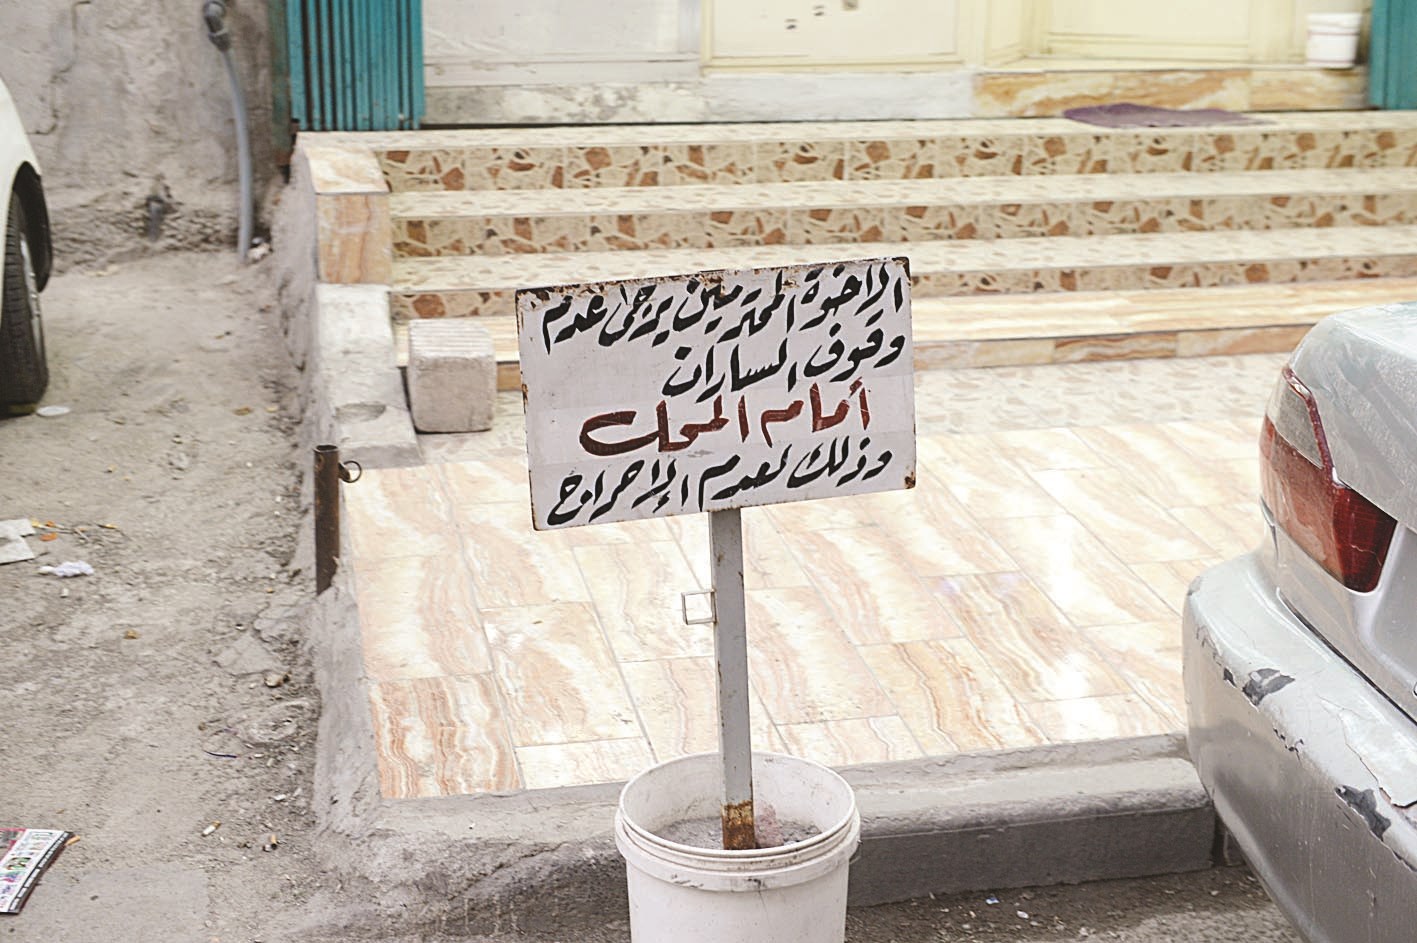 الإخوة المحترمين يرجى عدم
وقوف السيارات
أمام المحل
وذلك لعدم الإحراج